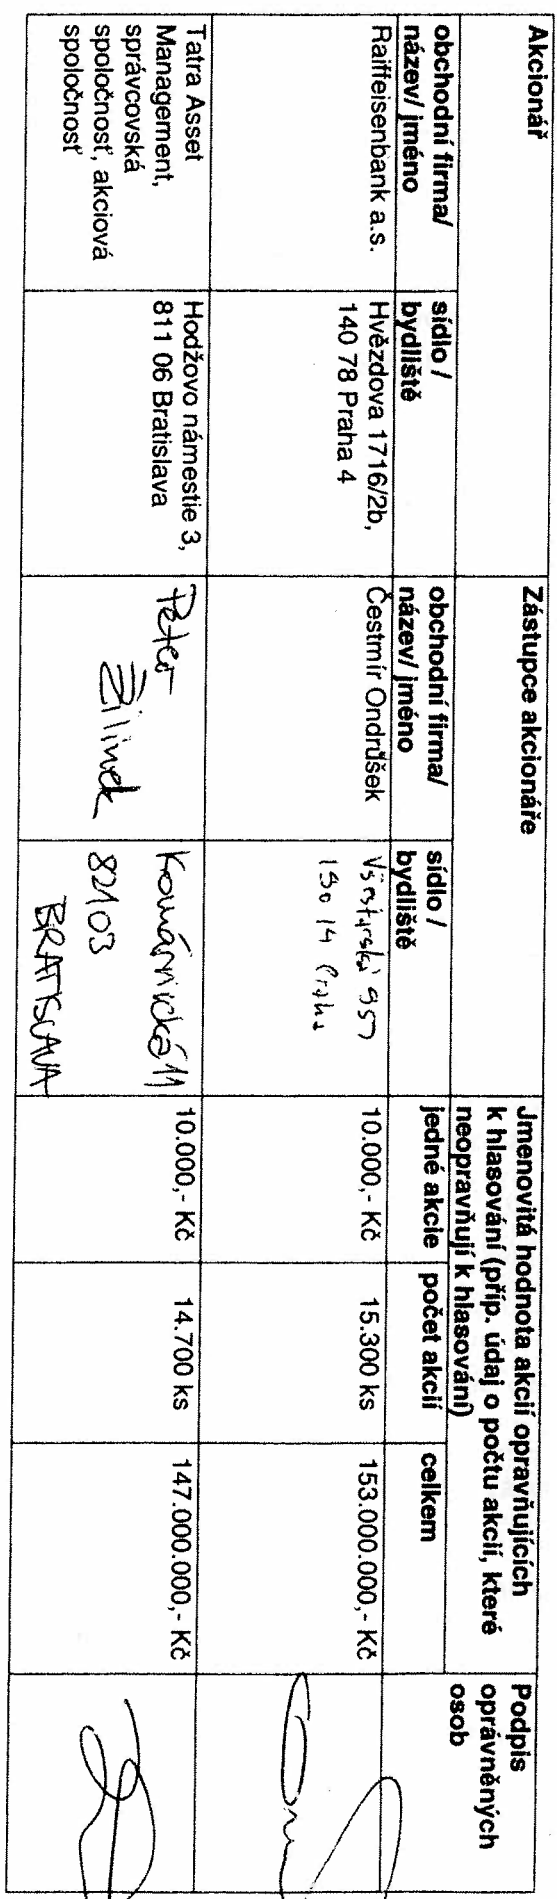 Akcionář
Zástupce akcionáře
Jmenovitá hodnota akcií opravňujících
k hlasování (příp. údaj o počtu akcií, které
neopravňují k hlasování)
Podpis
oprávněných
osob
obchodní firma/
název/ jméno
sídlo /
bydliště
obchodní firma/
název/ jméno
sídlo /
bydliště
jedné akcie
počet akcií
celkem
Raiffeisenbank a.s.
Hvězdova 1716/2b,
140 78 Praha 4
Čestmír Ondrůšek
957
Praha
10.000,- Kč
15.300 ks
153.000.000,- Kč
Tatra Asset
Management,
správcovská
spoločnosť, akciová
spoločnosť
Hodžovo námestie 3,
811 06 Bratislava
Peter
Žilinek
Komárnická 11
82103
BRATISLAVA
10.000,- Kč
14.700 ks
147.000.000,- Kč